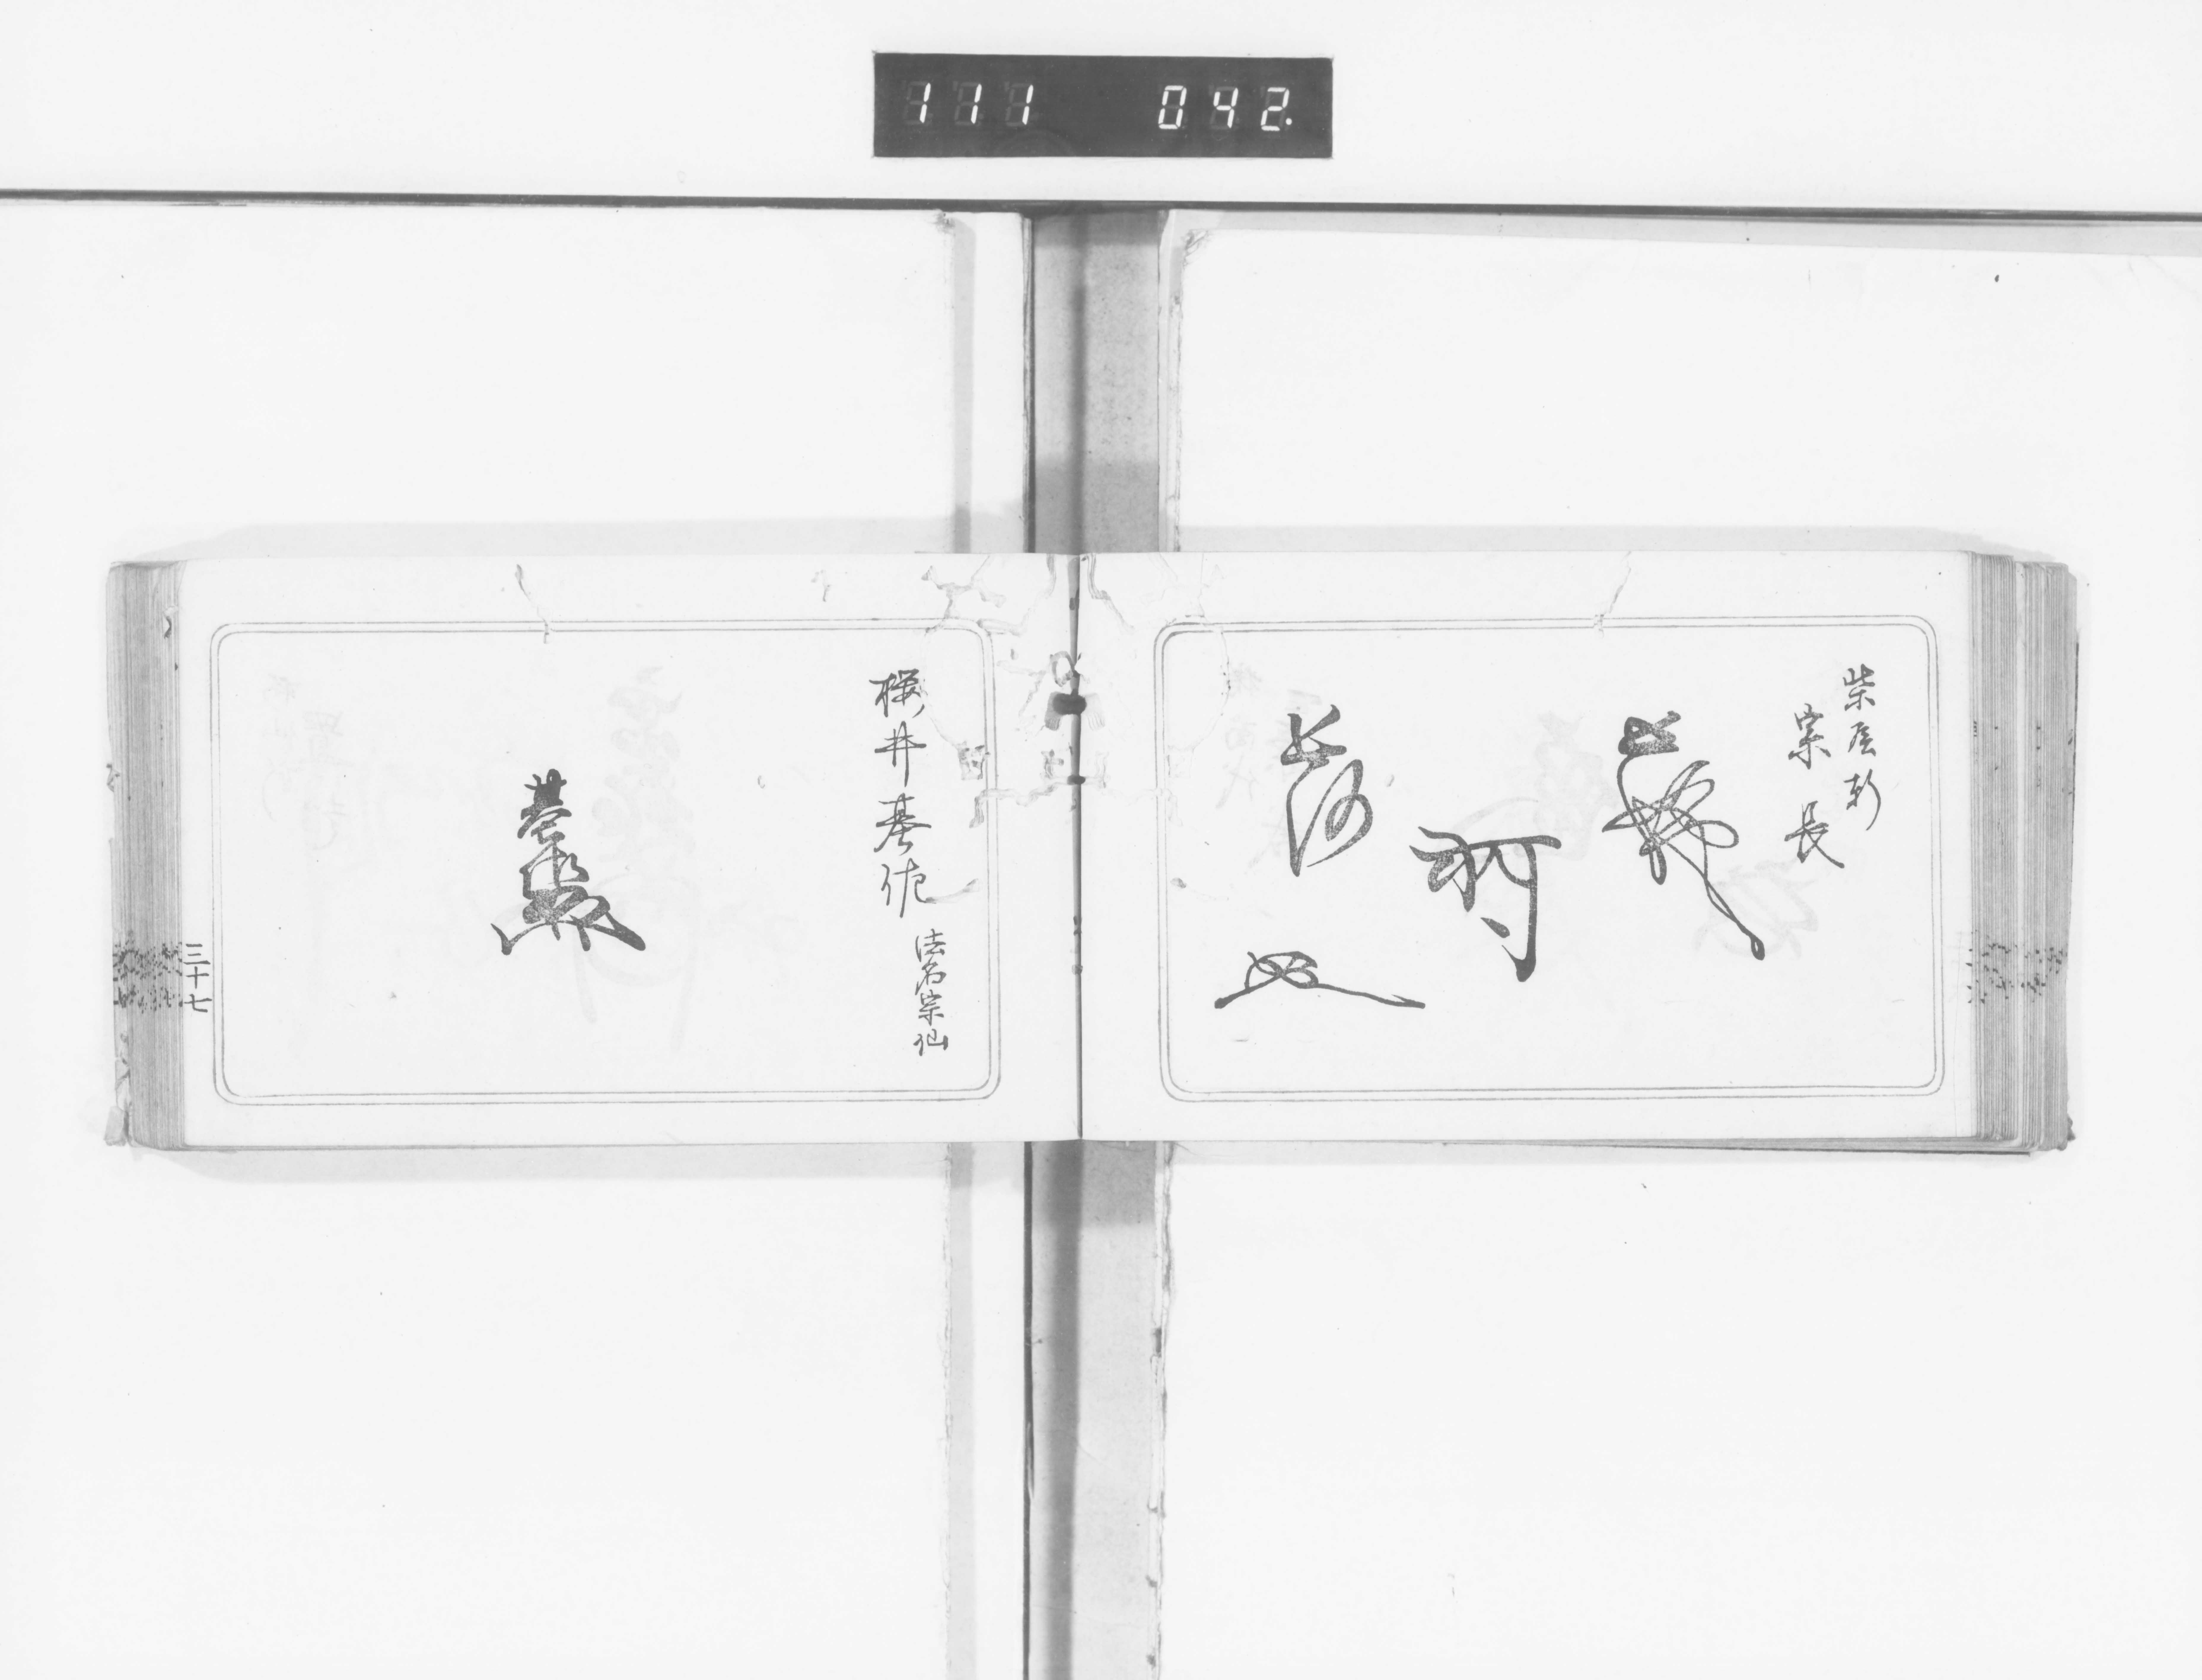 111 042.
柴屋軒
宗長
桜井基佐
法名宗仙
三十七